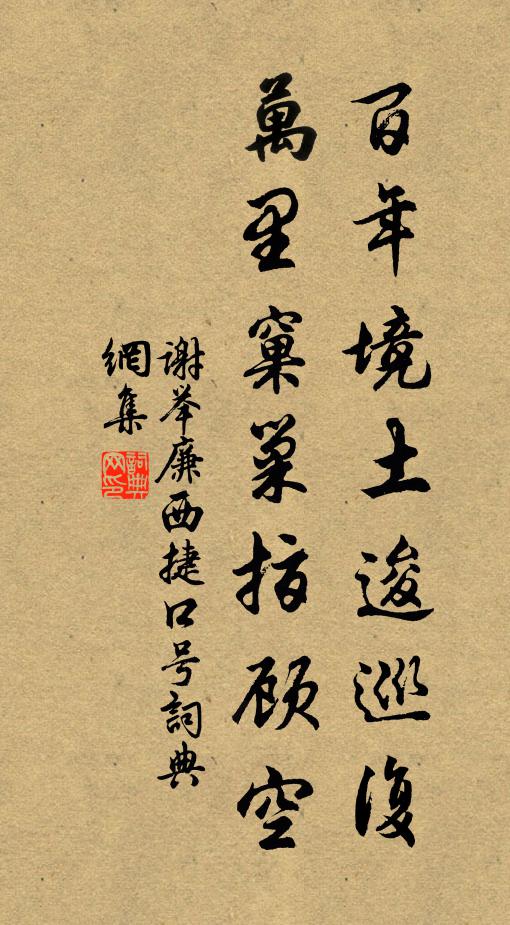 百年境土逡巡復
萬里窠巢指顧空
謝举廉西捷口号詞典
網集
詞典網印